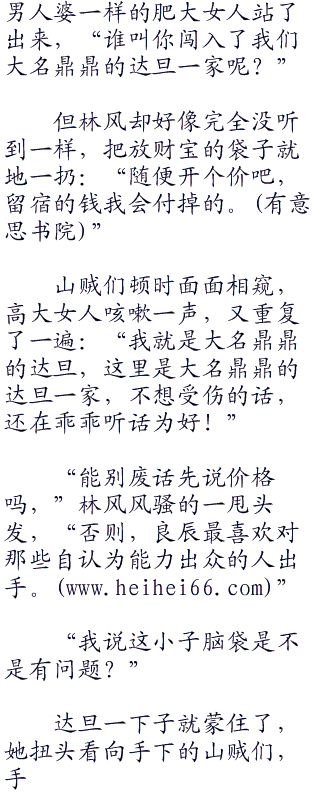 男人婆一样的肥大女人站了
出来，“谁叫你闯入了我们
大名鼎鼎的达旦一家呢？”
但林风却好像完全没听
到一样，把放财宝的袋子就
地一扔：“随便开个价吧，
留宿的钱我会付掉的。(有意
思书院)”
山贼们顿时面面相窥，
高大女人咳嗽一声，又重复
了一遍：“我就是大名鼎鼎
的达旦，这里是大名鼎鼎的
达旦一家，不想受伤的话，
还在乖乖听话为好！”
“能别废话先说价格
吗，”林风风骚的一甩头
发，“否则，良辰最喜欢对
那些自认为能力出众的人出
手。(www.heihei66.com)”
“我说这小子脑袋是不
是有问题？”
达旦一下子就蒙住了，
她扭头看向手下的山贼们，
手